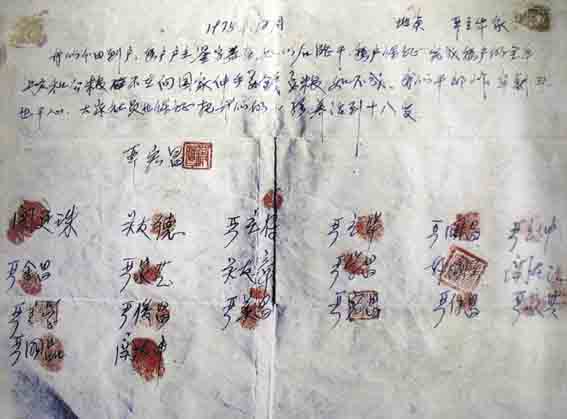 1978年12月 地点 严立华家
我们分田到户，每户户主签字盖章，如以后能干，每户保证完成每户的全年
上交和公粮。不在向国家伸手要钱要粮。如不成，我们干部作牢刹头
也干心，大家社员也保证把我们的小孩养活到十八岁
严宏昌
关廷珠 关友德 严立付 严立华 严国昌 严立坤
严金昌 严家芝 关友章 严学昌 韩国云 关友江
严立学 严俊昌 严美昌 严宏昌 严付昌 严家其
严国品 关友申